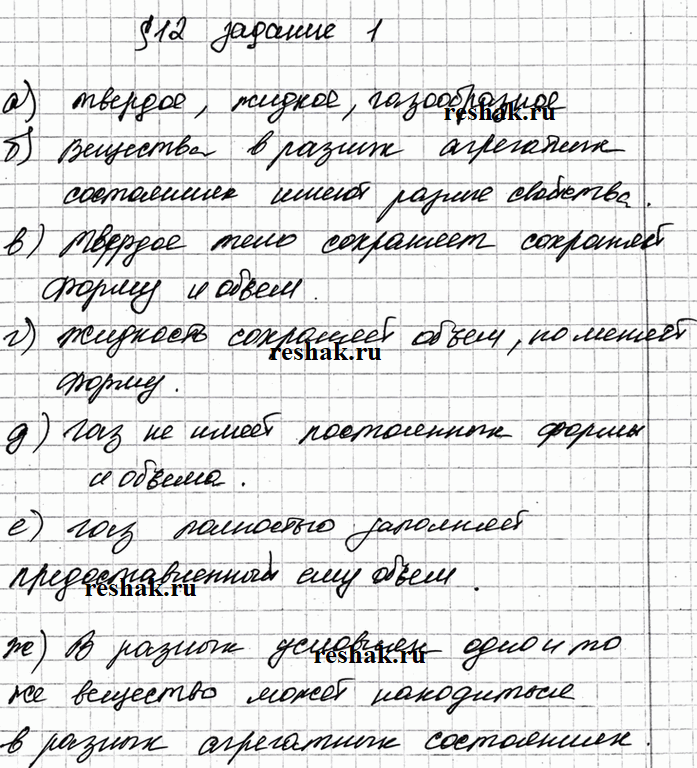 §12 задание 1
а) твердое, жидкое, газообразное
reshak.ru
б) Вещества в разных агрегатных
состояниях имеют разные свойства.
в) твердое тело сохраняет сохраняет
форму и объем.
г) жидкость сохраняет объем, но меняет
reshak.ru
форму.
д) газ не имеет постоянных формы
и объема.
е) газ полностью заполняет
предоставленный ему объем.
reshak.ru
ж) В разных условиях одно и то
reshak.ru
же вещество может находиться
в разных агрегатных состояниях.